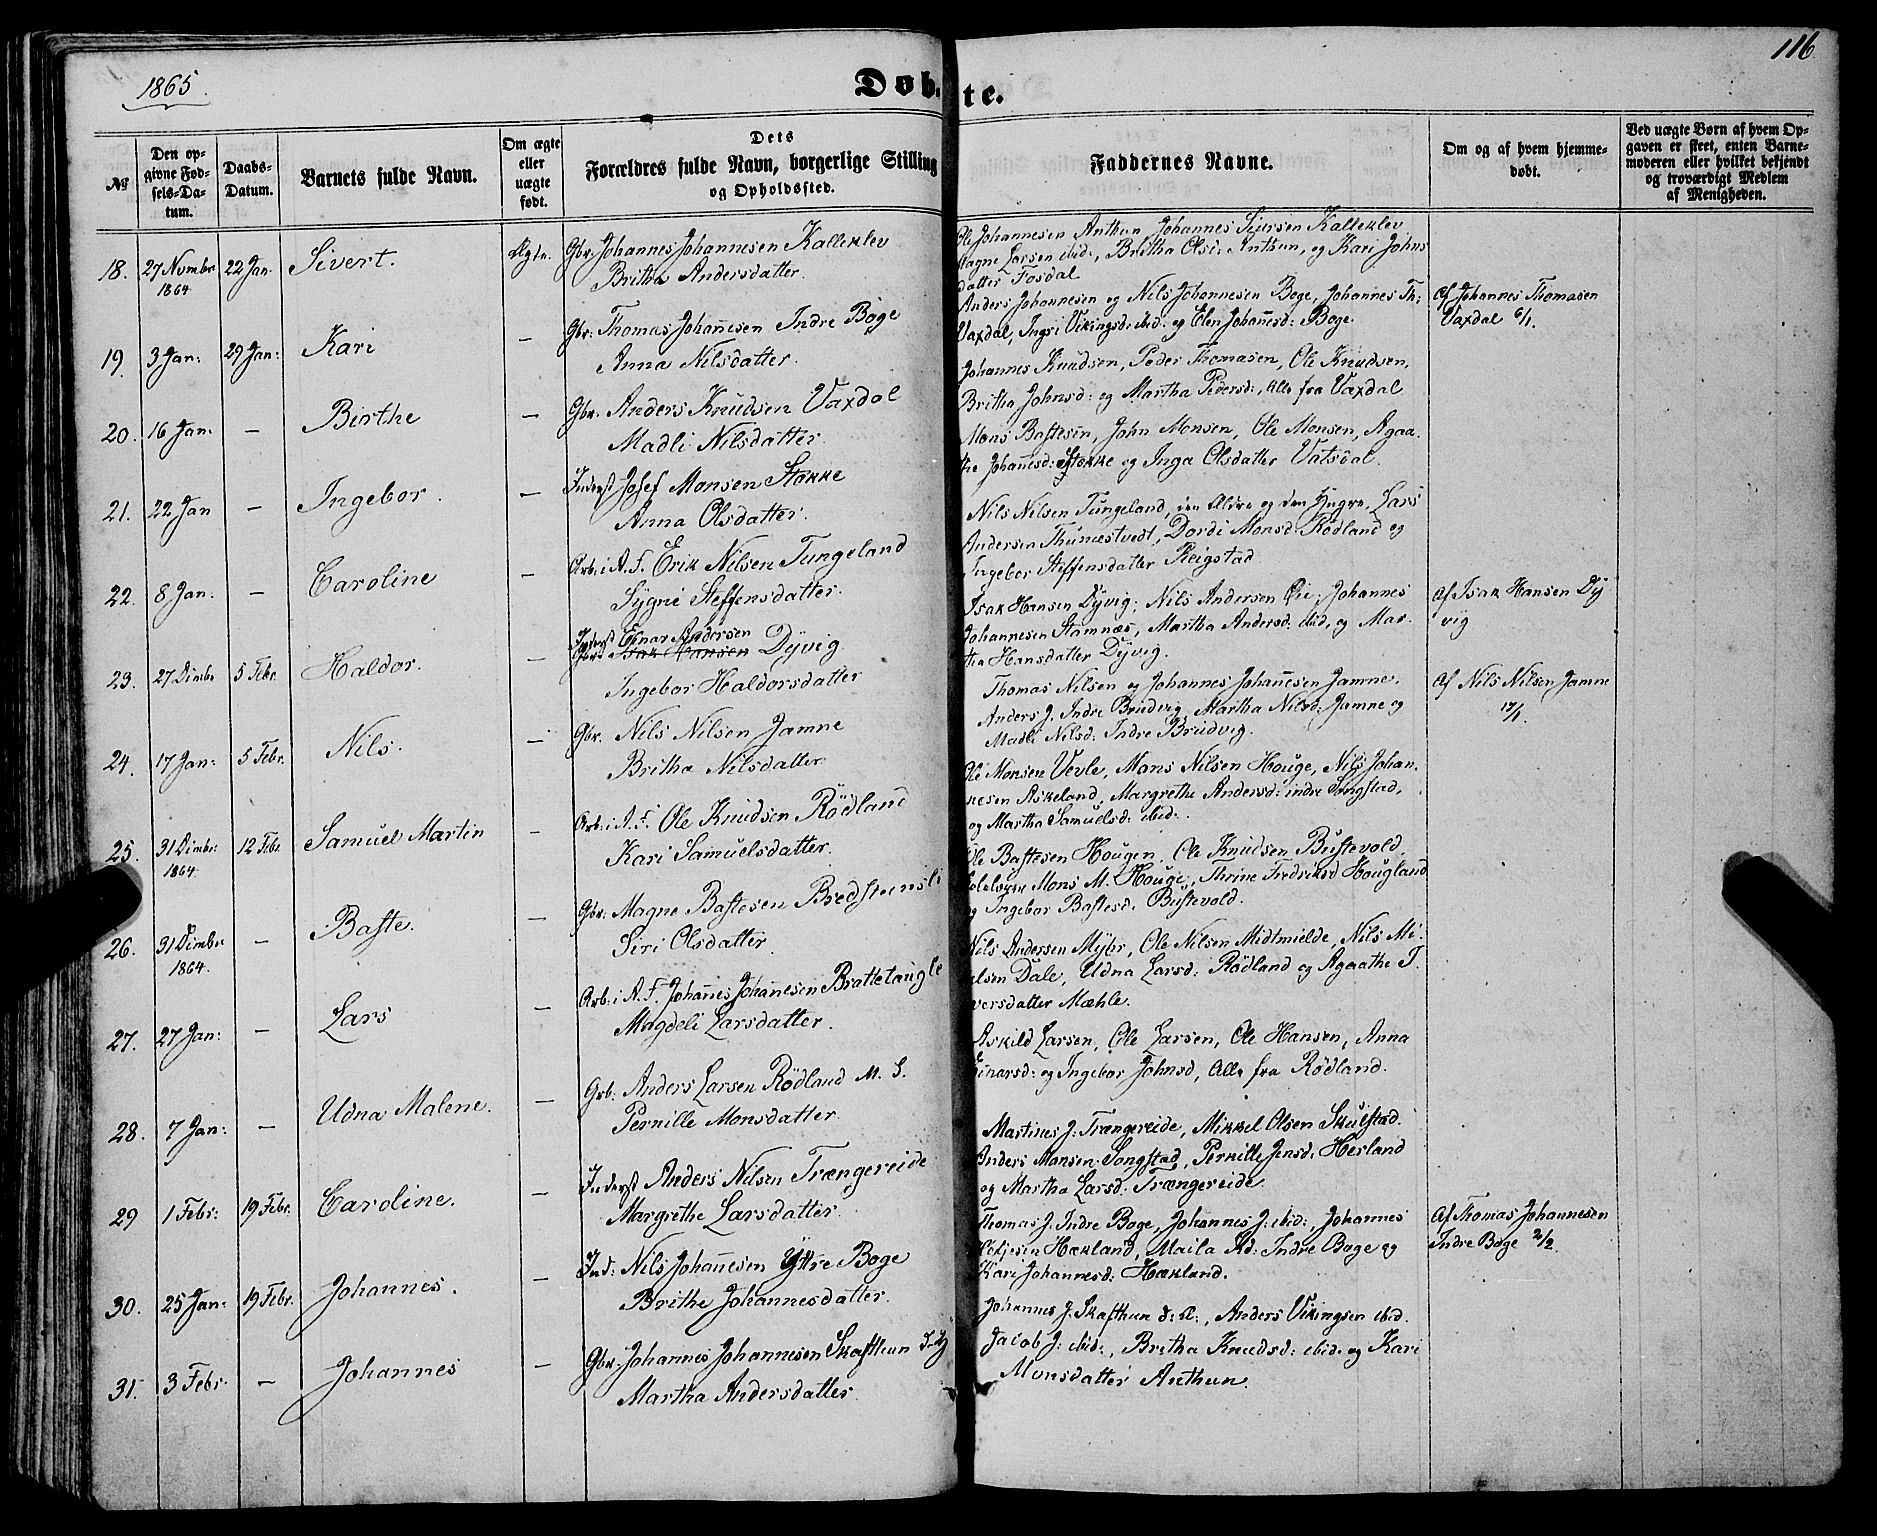 1865.
116.
Døbte.
No
Den opgivne Fødsels-Datum.
Daabs-Datum.
Barnets fulde Navn.
Om ægte eller uægte født.
Dets Forældres fulde Navn, borgerlige Stilling og Opholdssted.
Faddernes Navne.
Om og af hvem hjemmedøbt.
Ved uægte Børn af hvem Opgaven er skeet, enten Barnemoderen eller hvilket bekjendt og troværdigt Medlem af Menigheden.
18. 27 Novmbr 1864 22 Jan. Sivert. Ægte.
Gbr: Johannes Johannesen Kalleklev
Britha Andersdatter.
Ole Johannesen Anthun, Johannes Siursen Kalleklev
Magne Larsen ibid:, Britha Olsd: Anthun, og Kari Johns
datter Fosdal
19. 3 Jan: 29 Jan: Kari —
Gbr: Thomas Johañesen Indre Boge
Anna Nilsdatter.
Anders Johannesen og Nils Johannesen Boge, Johannes Th:
Vaxdal, Ingri Vikingsd: ibid: og Elen Johañesd: Boge.
Af Johannes Thomasen
Vaxdal 6/1.
20. 16 Jan: — Birthe —
Gbr: Anders Knudsen Vaxdal
Madli Nilsdatter.
Johannes Knudsen, Peder Thomasen, Ole Knudsen,
Britha Johnsd: og Martha Pedersd:, Alle fra Vaxdal
21. 22 Jan — Ingebor. —
Inderst Josef Monsen Stokke
Anna Olsdatter.
Mons Bastesen, John Monsen, Ole Monsen, Agaa
the Johañesd: Stokke og Inga Olsdatter Vatsdal.
22. 8 Jan: — Caroline —
Arb: i A. F. Erik Nilsen Tungeland
Sygni Steffensdatter.
Nils Nilsen Tungeland, den Ældre og den Yngre, Lars
Andersen Thunestvedt, Dordi Monsd: Rödland og
Ingebor Steffensdatter Reigstad
23. 27 Dmbr 5 Febr. Haldor. —
Inderst Einar Andersen
Gbr: Isak Hansen Dyvig
Ingebor Haldorsdatter
Isak Hansen Dyvig, Nils Andersen Øie, Johannes
Johannesen Stamnæs, Martha Andersd: ibid, og Mar
tha Hansdatter Dyvig.
Af Isak Hansen Dy
vig
24. 17 Jan: 5 Febr. Nils. —
Gbr. Nils Nilsen Jamne
Britha Nilsdatter
Thomas Nilsen og Johannes Johañesen Jamne,
Anders J. Indre Brudvig, Martha Nilsd: Jamne og
Madli Nilsd: Indre Brudvig.
Af Nils Nilsen Jamne
17/1.
25. 31 Dmbr: 1864 12 Febr Samuel Martin —
Arb: i A. F. Ole Knudsen Rödland
Kari Samuelsdatter.
Ole Monsen Vevle, Mons Nilsen Houge, Nils Johan
nesen Askeland, Margrethe Andersd: indre Songstad,
og Martha Samuelsd: ibid:.
26. 31 Dmbr 1864. — Baste. —
Gbr: Magne Bastesen Bredsteensli
Siri Olsdatter.
Ole Bastesen Hougen, Ole Knudsen Bustevold,
Mons M. Houge, Thrine Fredriksd Hougland
og Ingebor Bastesd: Bustevold.
27. 27 Jan: — Lars —
Arb: i A. F. Johañes Johañesen Brattetangle
Magdeli Larsdatter.
Nils Andersen Myhr, Ole Nilsen Midtmielde, Nils Ni
elsen Dale, Udna Larsd: Rödland og Agaathe I
versdatter Mæhle.
28. 7 Jan: — Udna Malene. —
Grb: Anders Larsen Rödland M. S.
Pernille Monsdatter.
Askild Larsen, Ole Larsen, Ole Hansen, Anna
Einarsd: og Ingebor Johnsd, Alle fra Rödland.
29 1 Febr: 19 Febr. Caroline. —
Inderst Anders Nilsen Trængereide
Margrethe Larsdatter.
Martines J: Trængereide, Mikkel Olsen Skulstad.
Anders Monsen Songstad, Pernille Jensd: Herland
og Martha Larsd: Trængereide.
30. 25 Jan: 19 Febr. Johannes. —
Ind: Nils Johañesen Yttre Boge
Brithe Johannesdatter.
Thomas J. Indre Boge, Johannes J: ibid:, Johannes
Hækland, Maila Kd: Indre Boge og
Kari Johannesd: Hækland.
Af Thomas Johannesen
Indre Boge 2/2.
31. 3 Febr. — Johannes —
Gbr: Johannes Johannesen Skafthun
Martha Andersdatter.
Johannes J. Skafthun d: Æ:, Anders Vikingsen ibid.
Jacob J: ibid:, Britha Knudsd: ibid: og Kari
Monsdatter Anthun.